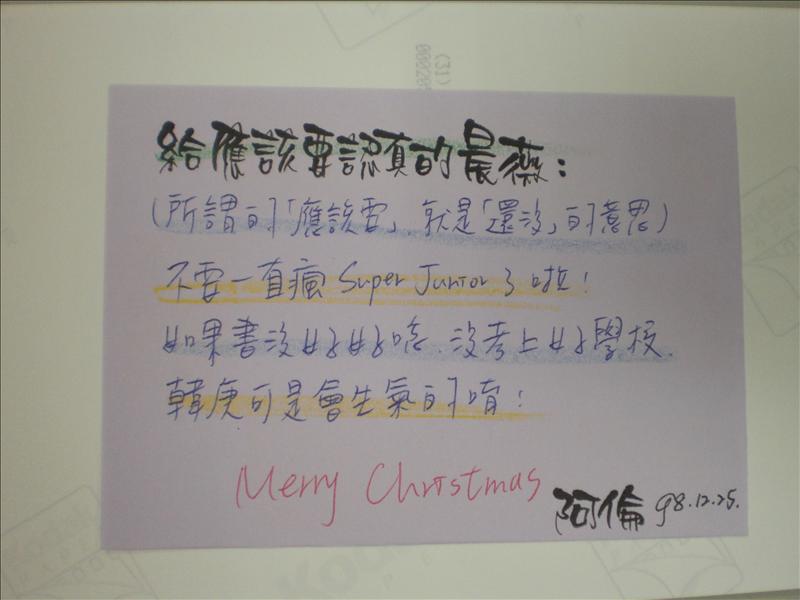 給應該要認真的晨薇：
(所謂的「應該要」就是「還沒」的意思)
不要一直瘋 Super Junior 了啦！
如果書沒好好唸，沒考上好學校，
韓庚可是會生氣的唷！
Merry Christmas
阿倫 98.12.25.